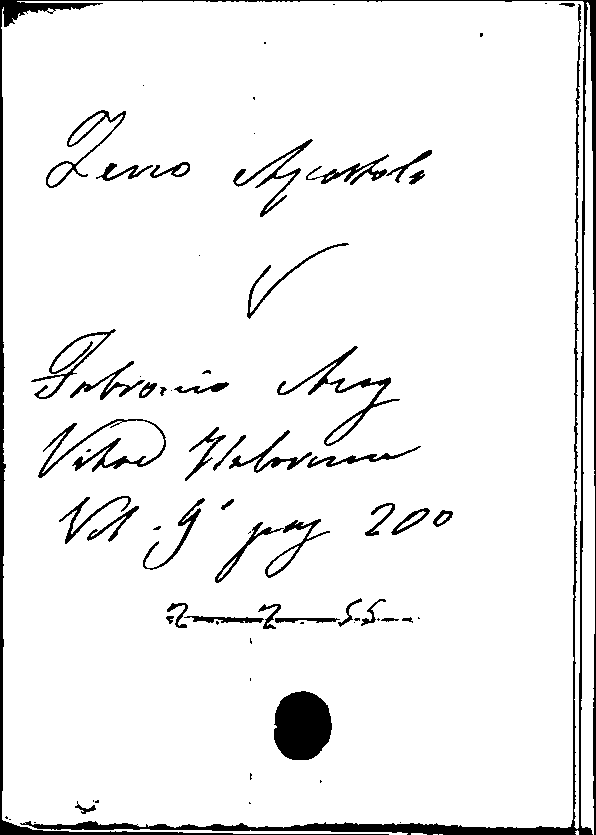 Zeno Apostolo
V
Fabronio Ang
Vitae Italorum
Vol. 9° pag 200
2 2 55